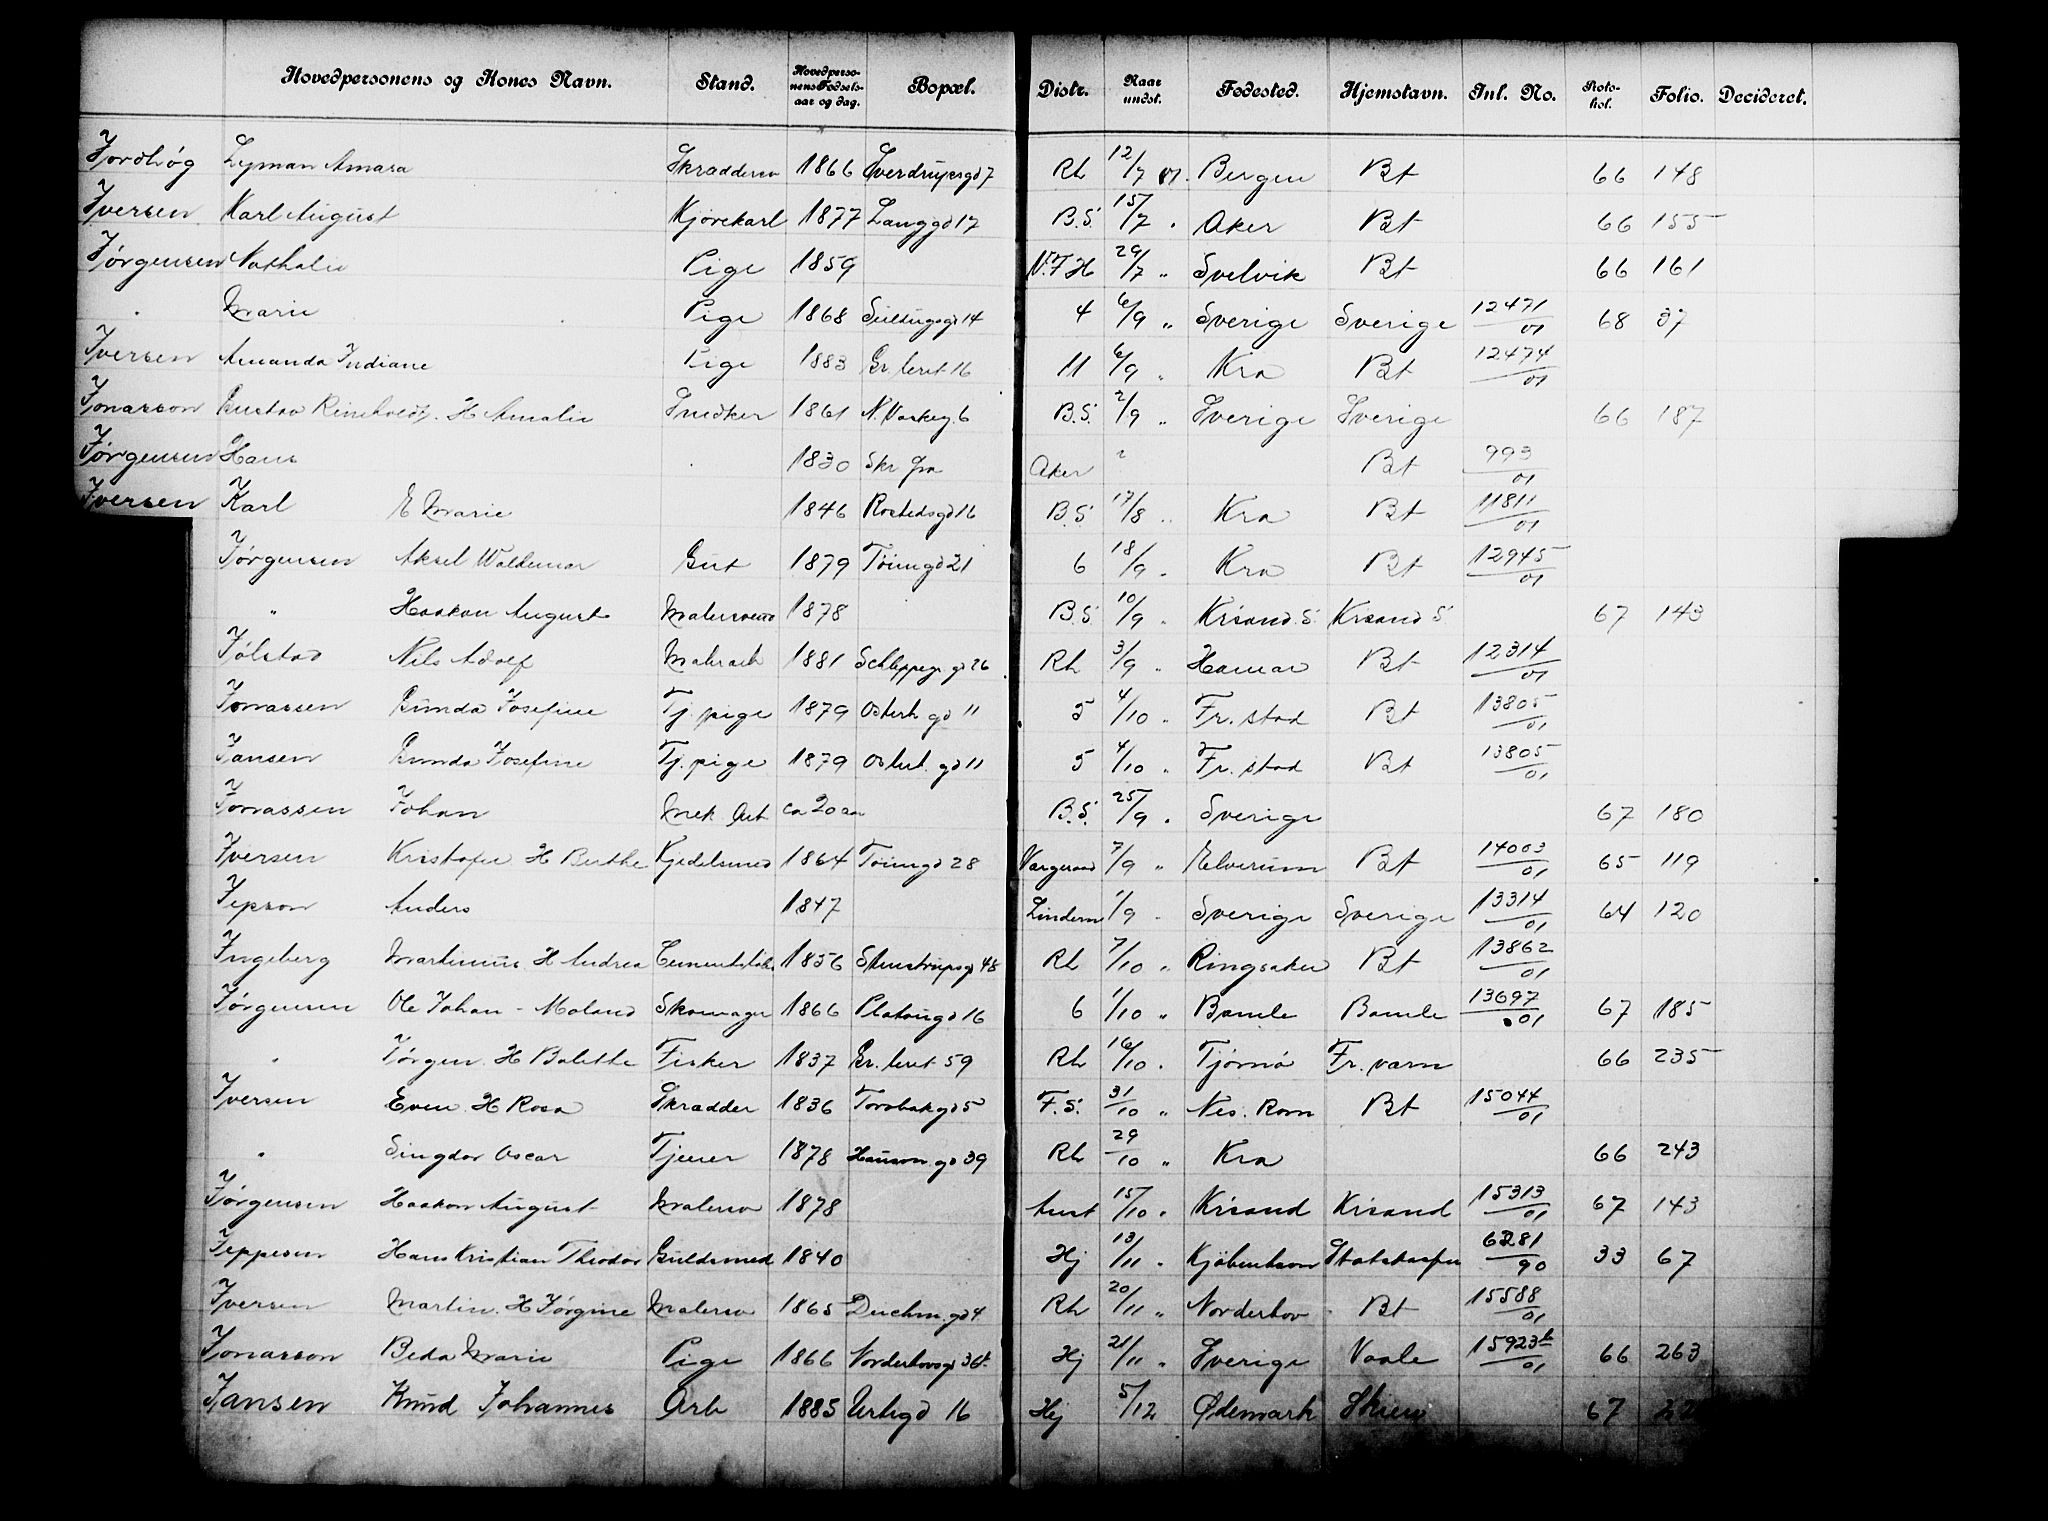 Hovedpersonens og Kones Navn. Stand. Hovedpersonens Fødselsaar og dag. Bopæl. Distr. Naar undst. Fødested. Hjemstavn. Int. No. Protokol. Folio. Decideret.
Jordhøg Lyman Amara Skräddersv 1866 Sverdrupsgd 7 Rh 12/7 01. Bergen Bt 66 148
Iversen Karl August Kjørekarl 1877 Langgd 17 B.S. 15/7 " Aker Bt 66 155
Jørgensen Nathalie Pige 1859 V.F.H 29/7 " Svelvik Bt 66 161
" Marie Pige 1868 Siltugsgd 14 4 6/9 " Sverige Sverige 12471/01 68 37
Iversen Amanda Indiane Pige 1883 Gr. leret 16 11 6/9 " Kra Bt 12474/01
Jonasson Gustav Reinholdt. H Amalie Snedker 1861 N. Vaskeg. 6 B.S. 2/9 " Sverige Sverige 66 187
Jørgensen Hans 1830 Skr Aker Bt 993/01
Iversen Karl E Marie 1846 Rostedsgd 16 B.S. 17/8 " Kra Bt 11811/01
Jørgensen Aksel Waldemar Gut 1879 Tøiengd 21 6 18/9 " Kra Bt 12945/01
" Haakon August Malersvend 1878 B.S. 10/9 " Krsand. S. Krsand S 67 143
Jølstad Nils Adolf Malerarb 1881 Schleppegr. gd 26 Rh 3/9 " Hamar Bt 12314/01
Jonassen Gunda Josefine Tj. pige 1879 Osterh. gd 11 5 4/10 " Fr. stad Bt 13805/01
Jansen Gunda Josefine Tj. pige 1879 Osterh. gd 11 5 4/10 " Fr. stad Bt 13805/01
Jonassen Johan Mek. Arb ca 20 aar B.S. 25/9 " Sverige 67 180
Iversen Kristofer H Berthe Kjedelsmed 1864 Tøiengd 28 7/9 " Elverum Bt 14003/01 65 119
Jepson Anders 1847 Lindern 1/9 " Sverige Sverige 13314/01 64 120
Ingeberg Martinius H Andrea 1856 Stenstrupsgd 48 Rh 7/10 " Ringsaker Bt 13862/01
Jørgensen Ole Johan - Moland Skomager 1866 Platougd 16 6 1/10 " Bamle Bamle 13697/01 67 185
" Jørgen. H Bolethe Fisker 1837 Gr. leret 59 Rh 16/10 " Tjømø Fr. varn 66 235
Iversen Even. H Rosa Skradder 1836 Torvbakgd 5 F.S. 31/10 " Nes. Rom Bt 15044/01
" Singdor Oscar Tjener 1878 Hauson gd 39 Rh 29/10 " Kra 66 243
Jørgensen Haakon August Malersv 1878 Aust 15/10 " Krsand Krsand 15313/01 67 143
Jeppesen Hans Kristian Theodor Guldsmed 1840 Hj 13/11 " Kjøbenhavn Statskassen 6281/90 33 67
Iversen Martin. H Jørgine Malersv 1865 Deichm. gd 4 Rh 20/11 " Norderhov Bt 15588/01
Jonasson Beda Marie Pige 1866 Norderhovsgd 36 Hj 21/11 " Sverige Vaale 15923/01 66 263
Jansen Knud Johannes Arb 1885 Urtegd 16 Hj 5/12 Ødemark Skien 67